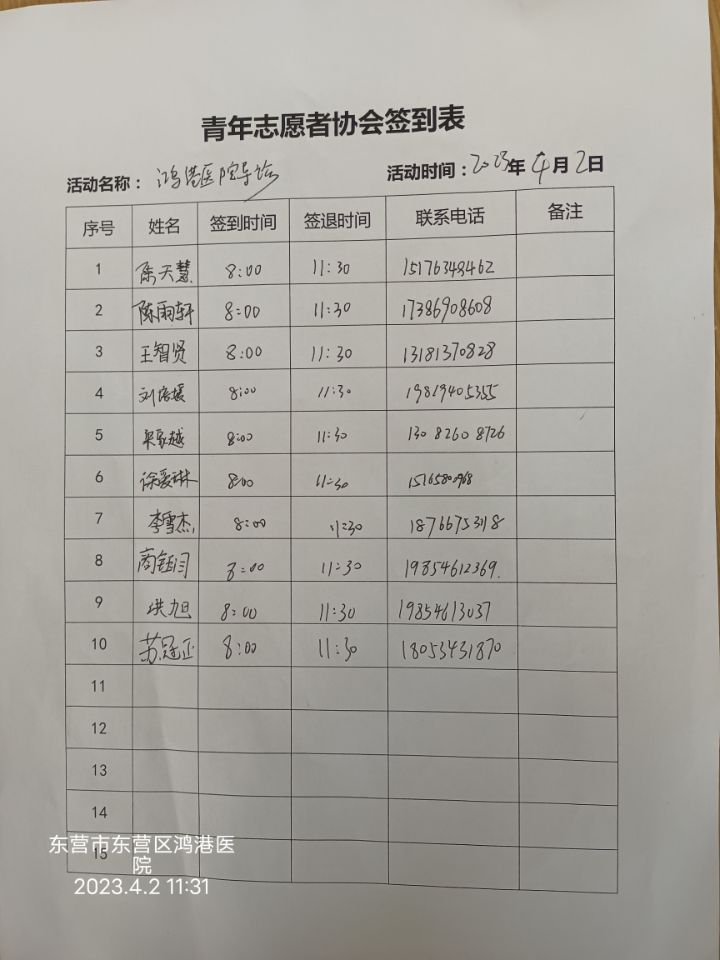 青年志愿者协会签到表
活动名称：鸿港医院导诊 活动时间：2023年4月2日
序号 姓名 签到时间 签退时间 联系电话 备注
1 陈天慧 8:00 11:30 15176348462
2 陈雨轩 8:00 11:30 17386908608
3 王智贤 8:00 11:30 13181370828
4 刘培媛 8:00 11:30 19819405355
5 8:00 11:30 130 8260 8726
6 徐爱琳 8:00 11:30
7 李雪杰 8:00 11:30
8 商钰闫 8:00 11:30 19854612369.
9 洪旭 8:00 11:30 19854613037
10 苏冠正 8:00 11:30 18053431870
11
12
13
14
15
东营市东营区鸿港医
院
2023.4.2 11:31